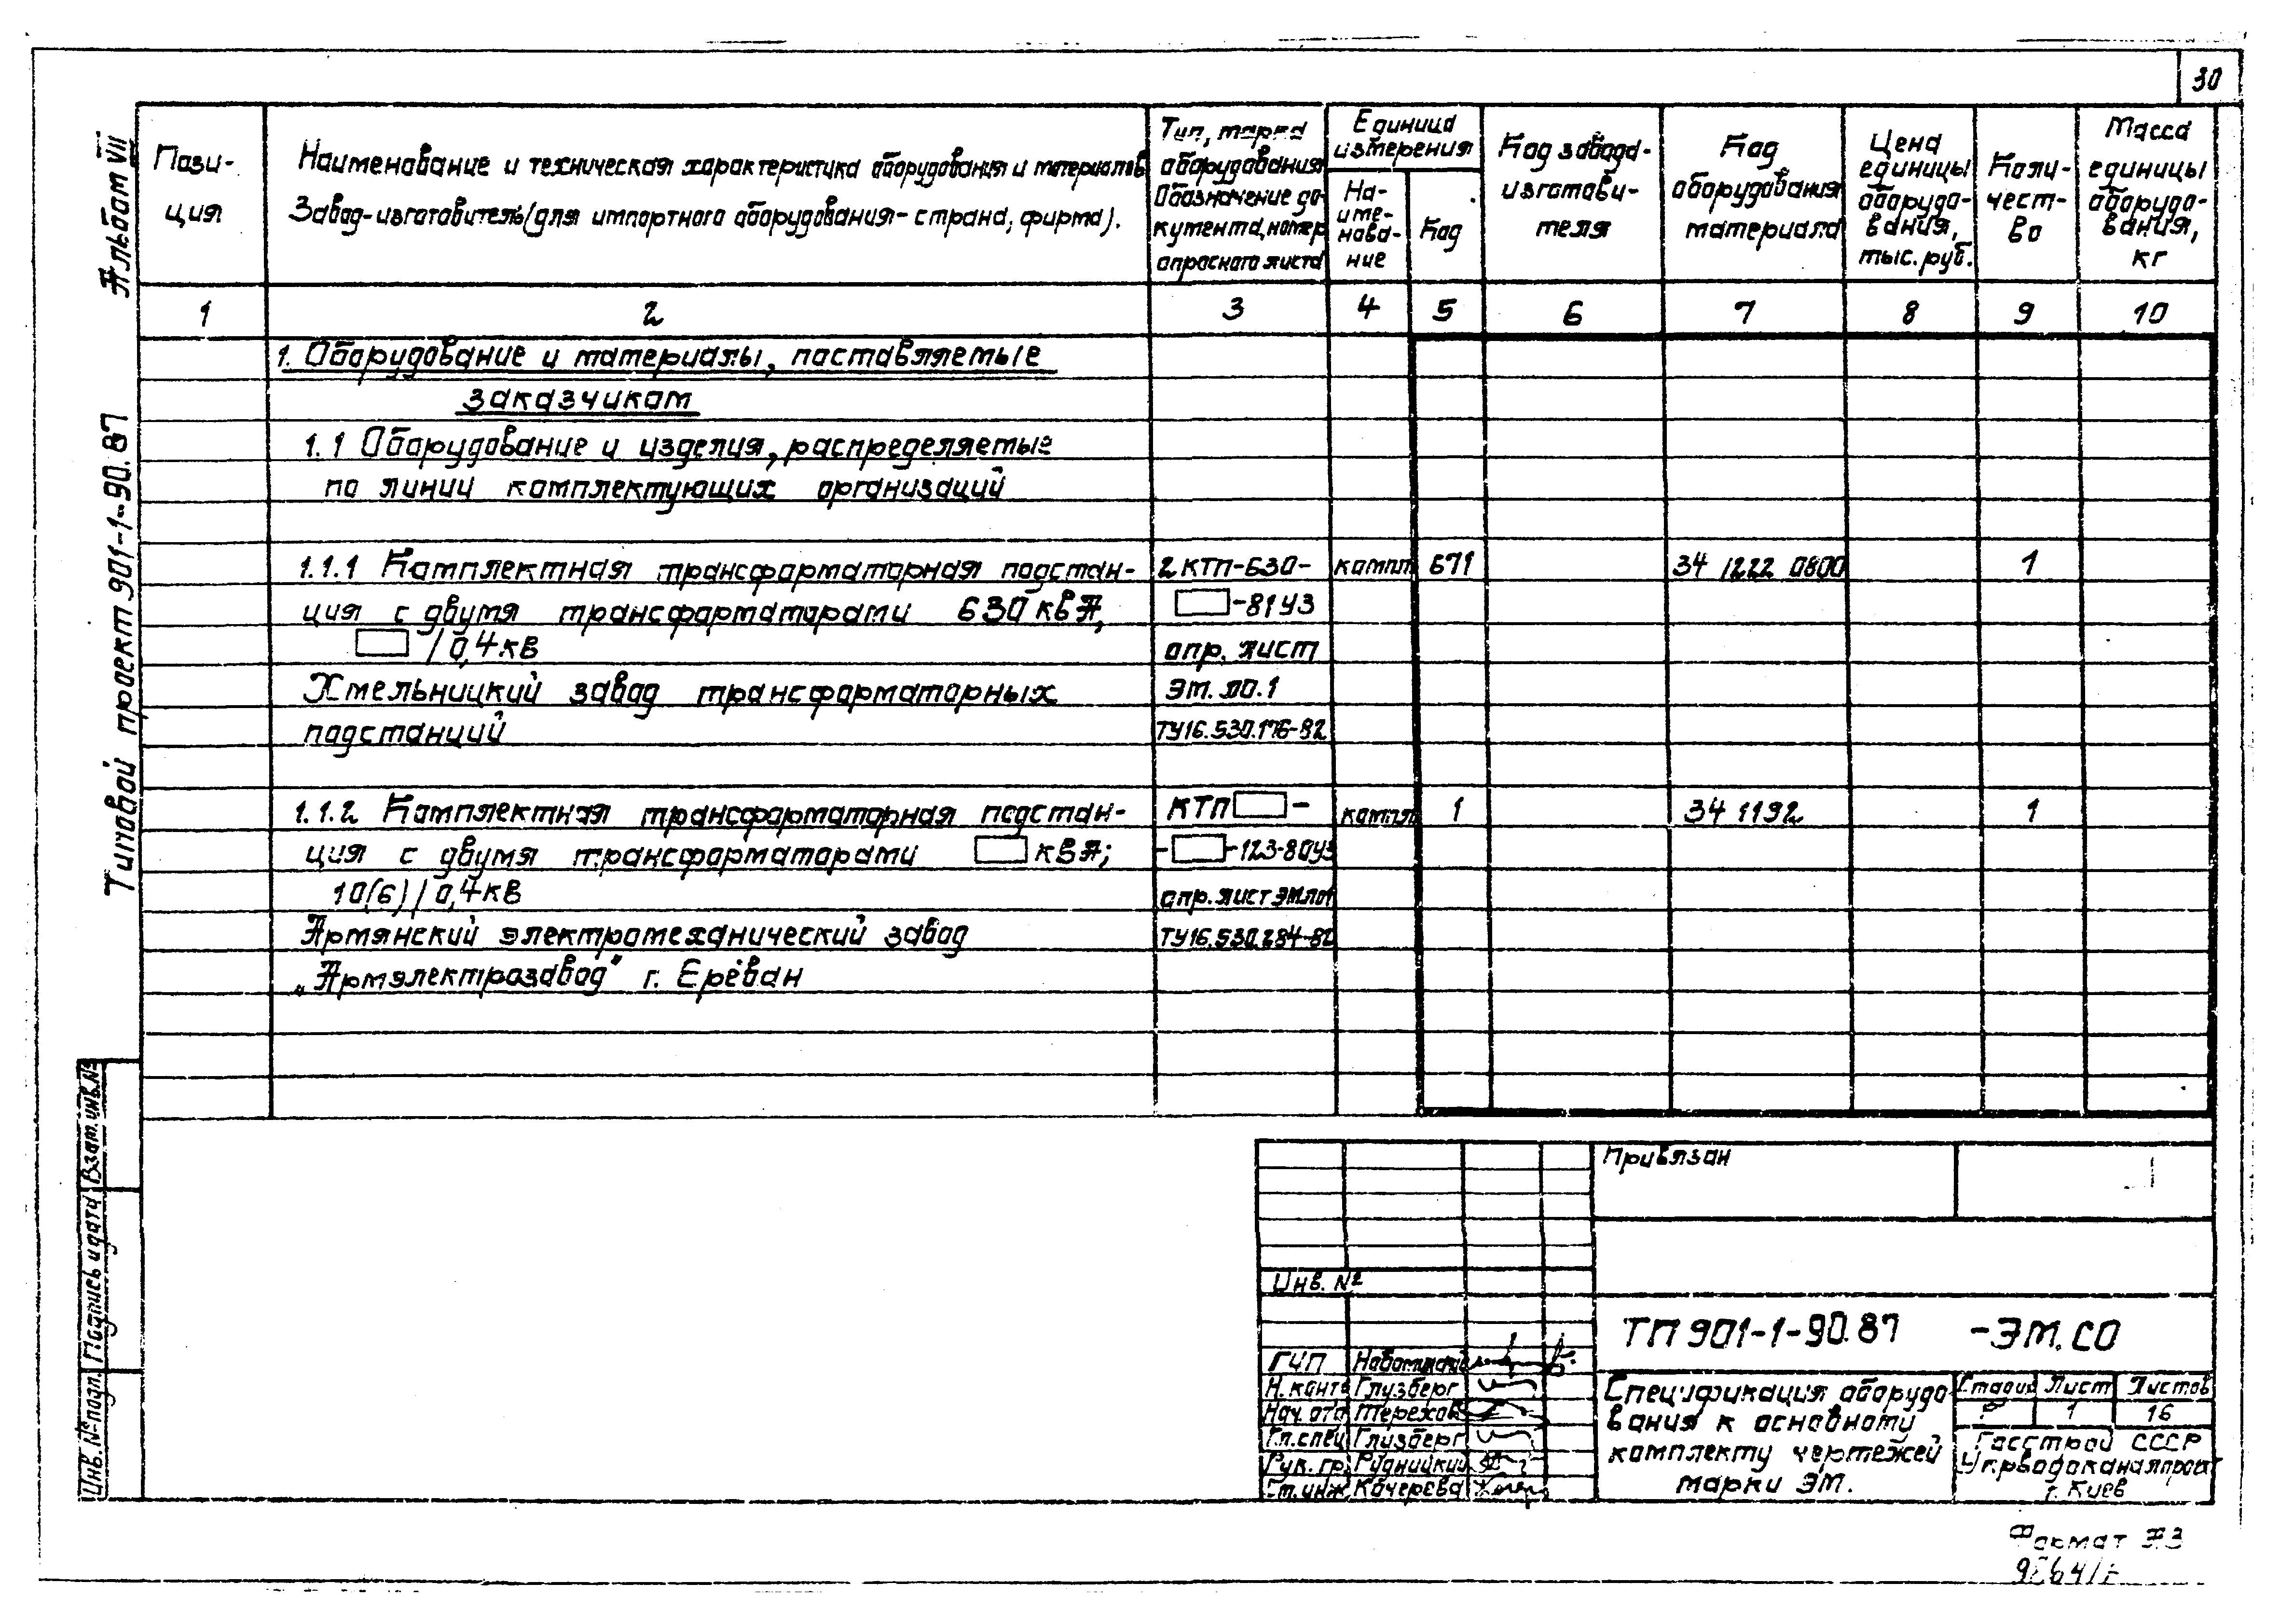 30
Альбом VII
Типовой проект 901-1-90.87
Пози-
ция
Наименование и техническая характеристика оборудования и материалов
Завод-изготовитель (для импортного оборудования - страна, фирма).
Тип, марка
оборудования
Обозначение до-
кумента, номер
опросного листа
Единица
измерения
На-
име-
нова-
ние
Код
Код завода-
изготови-
теля
Код
оборудования
материала
Цена
единицы
оборудо-
вания,
тыс. руб.
Коли-
чест-
во
Масса
единицы
оборудо-
вания,
кг
1 2 3 4 5 6 7 8 9 10
1. Оборудование и материалы, поставляемые
заказчиком
1.1 Оборудование и изделия, распределяемые
по линии комплектующих организаций
1.1.1 Комплектная трансформаторная подстан- 2КТП-630- компл 671 34 1222 0800 1
ция с двумя трансформаторами 630 кВА, -81У3
/ 0,4 кВ опр. лист
Хмельницкий завод трансформаторных ЭМ. ЛО.1
подстанций ТУ16.530.176-82
1.1.2 Комплектная трансформаторная подстан- КТП - компл 1 34 1192 1
ция с двумя трансформаторами кВА; - -123-80У3
10(6) / 0,4 кВ опр. лист ЭМ.ЛО1
Армянский электромеханический завод ТУ16.530.284-82
„Армэлектрозавод" г. Ереван
Взам. инв. №
Подпись и дата
Инв. № подл.
Привязан
Инв. №
ТП 901-1-90.87 -ЭМ.СО
ГИП
Н. конт Глузберг
Нач. отд Терехов
Гл. спец Глузберг
Рук. гр. Рудницкий
Ст. инж Кочерева
Спецификация оборудо
вания к основному
комплекту чертежей
марки ЭМ.
Стадия Лист Листов
Р 1 16
Госстрой СССР
Укрводоканалпроект
г. Киев
Формат А3